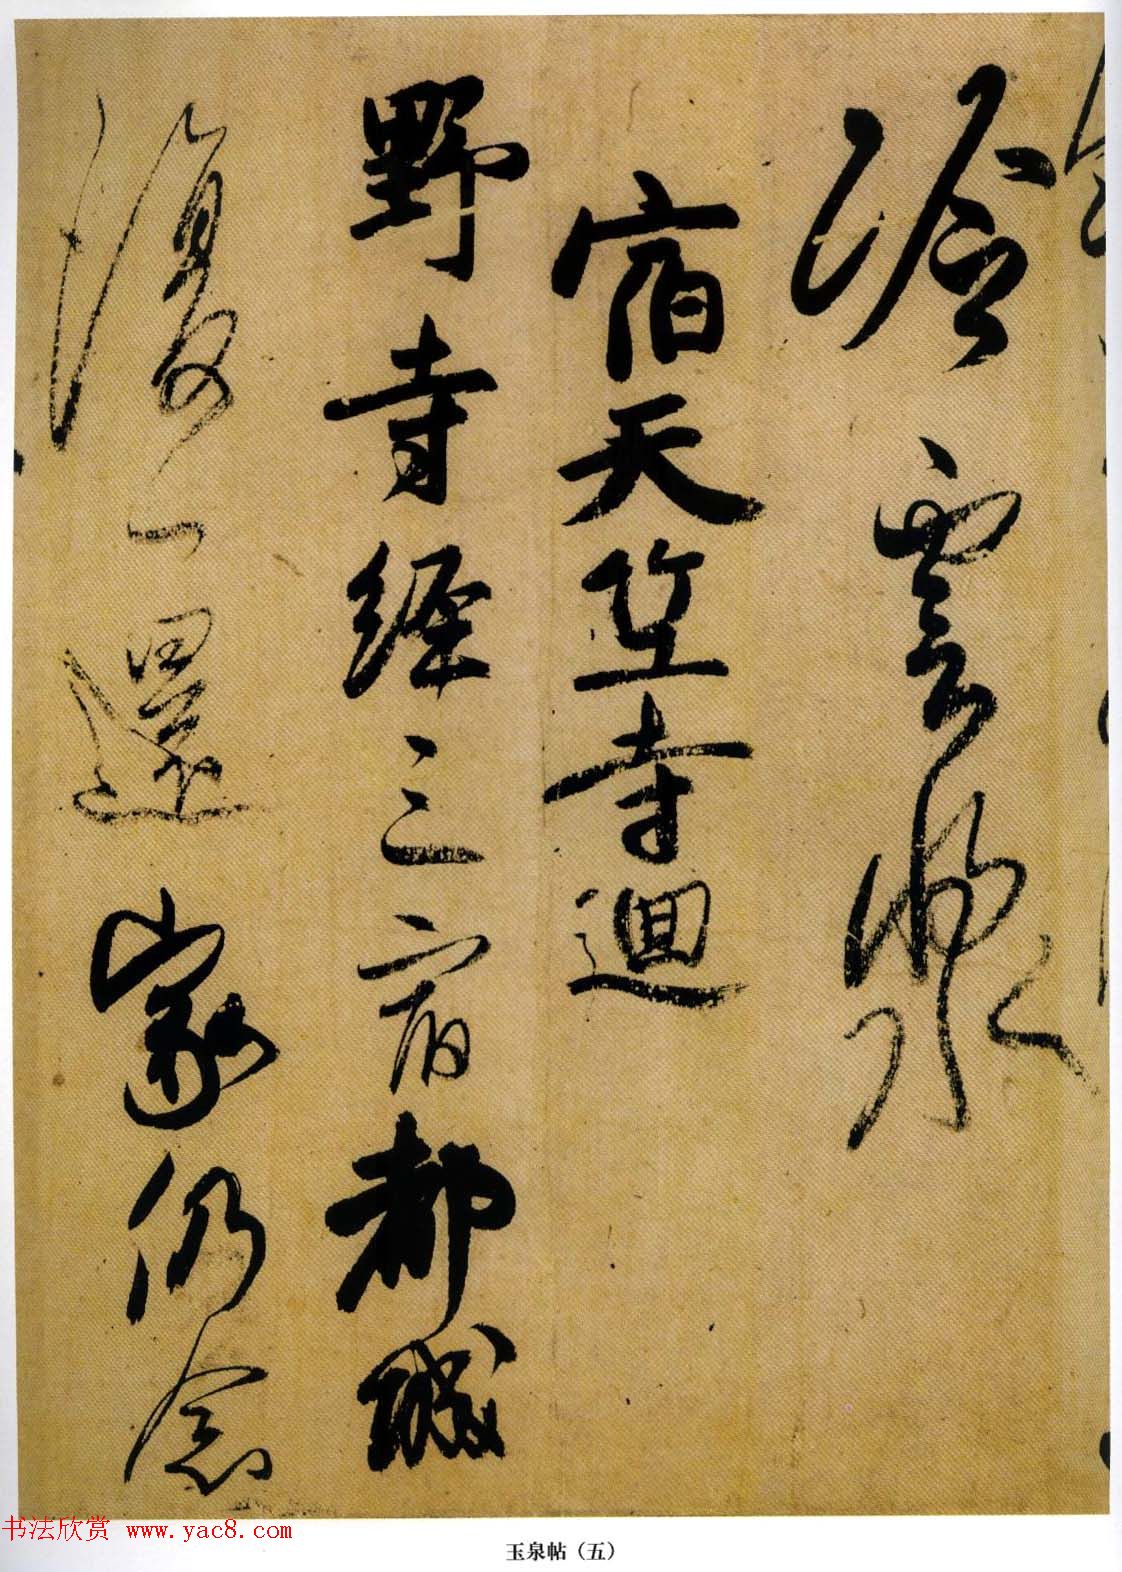 冷雲漿
宿天竺寺迴
野寺經三宿都城
復一還家仍念
书法欣赏 www.yac8.com
玉泉帖（五）